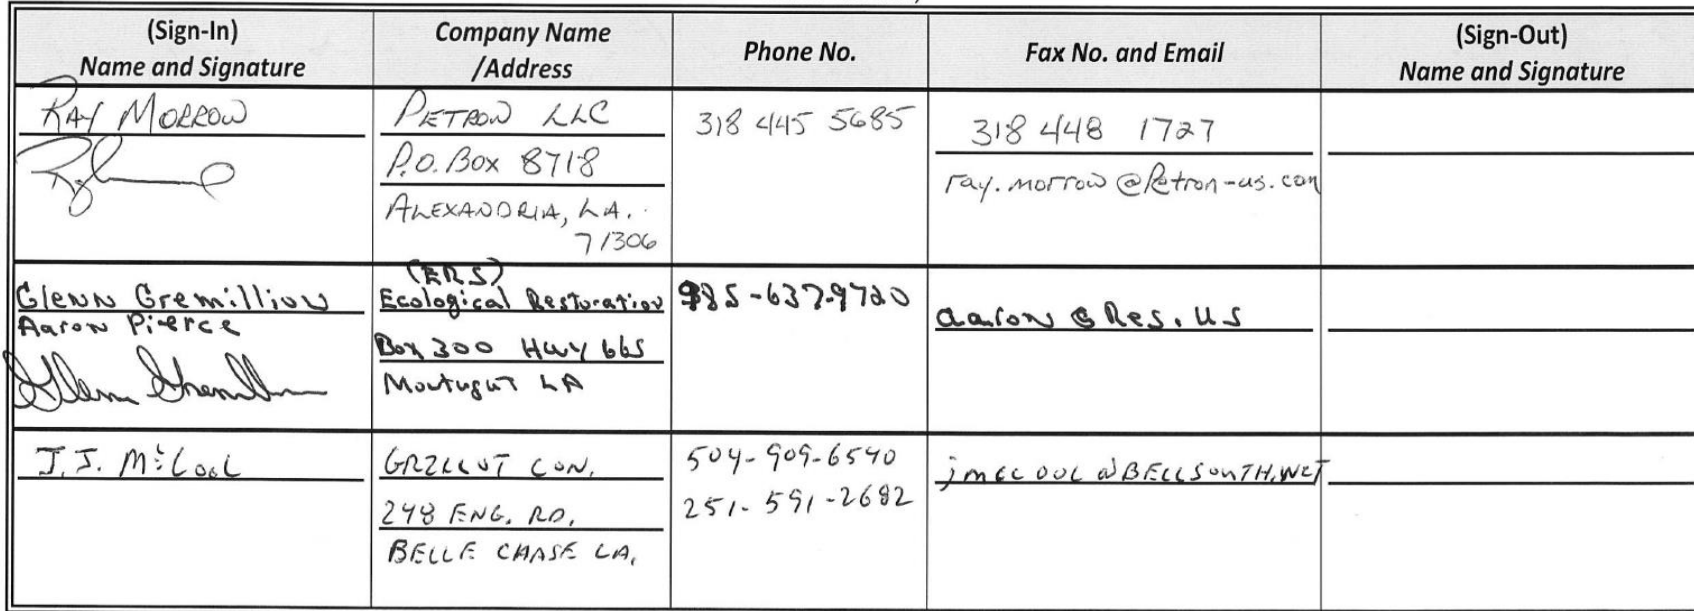 (Sign-In)
Name and Signature
Company Name
/Address
Phone No.
Fax No. and Email
(Sign-Out)
Name and Signature
RAY MORROW
PETRON LLC
P.O. BOX 8718
ALEXANDRIA, LA.
71306
318 445 5685
318 448 1727
ray.morrow@Petron-us.com
Glenn Gremillion
Aaron Pierce
Glenn Gremillion
(ERS)
Ecological Restoration
Box 300 HWY 665
Montegut LA
985-637-9720
aaron@Res.us
J.J. McCool
CON.
248 ENG. RD.
BELLE CHASE LA.
504-909-6540
251-591-2682
jmccool@BELLSOUTH.NET